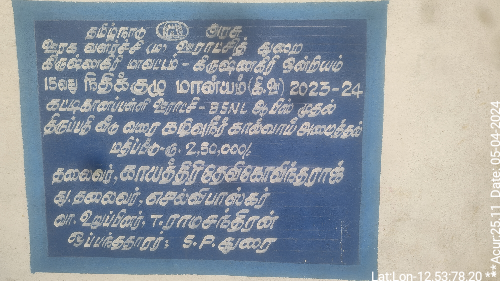 தமிழ்நாடு அரசு
ஊரக வளர்ச்சி (ம) ஊராட்சித் துறை
கிருஷ்ணகிரி மாவட்டம் - கிருஷ்ணகிரி ஒன்றியம்
15வது நிதிக்குழு மான்யம் 2023-24
கட்டிகானப்பள்ளி ஊராட்சி - BSNL ஆபீஸ் முதல்
திருப்பதி வீடு வரை கழிவுநீர் கால்வாய் அமைத்தல்
மதிப்பீடு-ரூ. 2,30,000/-
தலைவர், காயத்திரி தேவி கோவிந்தராஜ்
து.தலைவர், செல்வி பாஸ்கர்
வா. உறுப்பினர், T. ராமசந்திரன்
ஒப்பந்ததாரர்; S. P. துரை
Lat:Lon-12.53:78.20 ***Agur25.11 Date: 05-04-2024